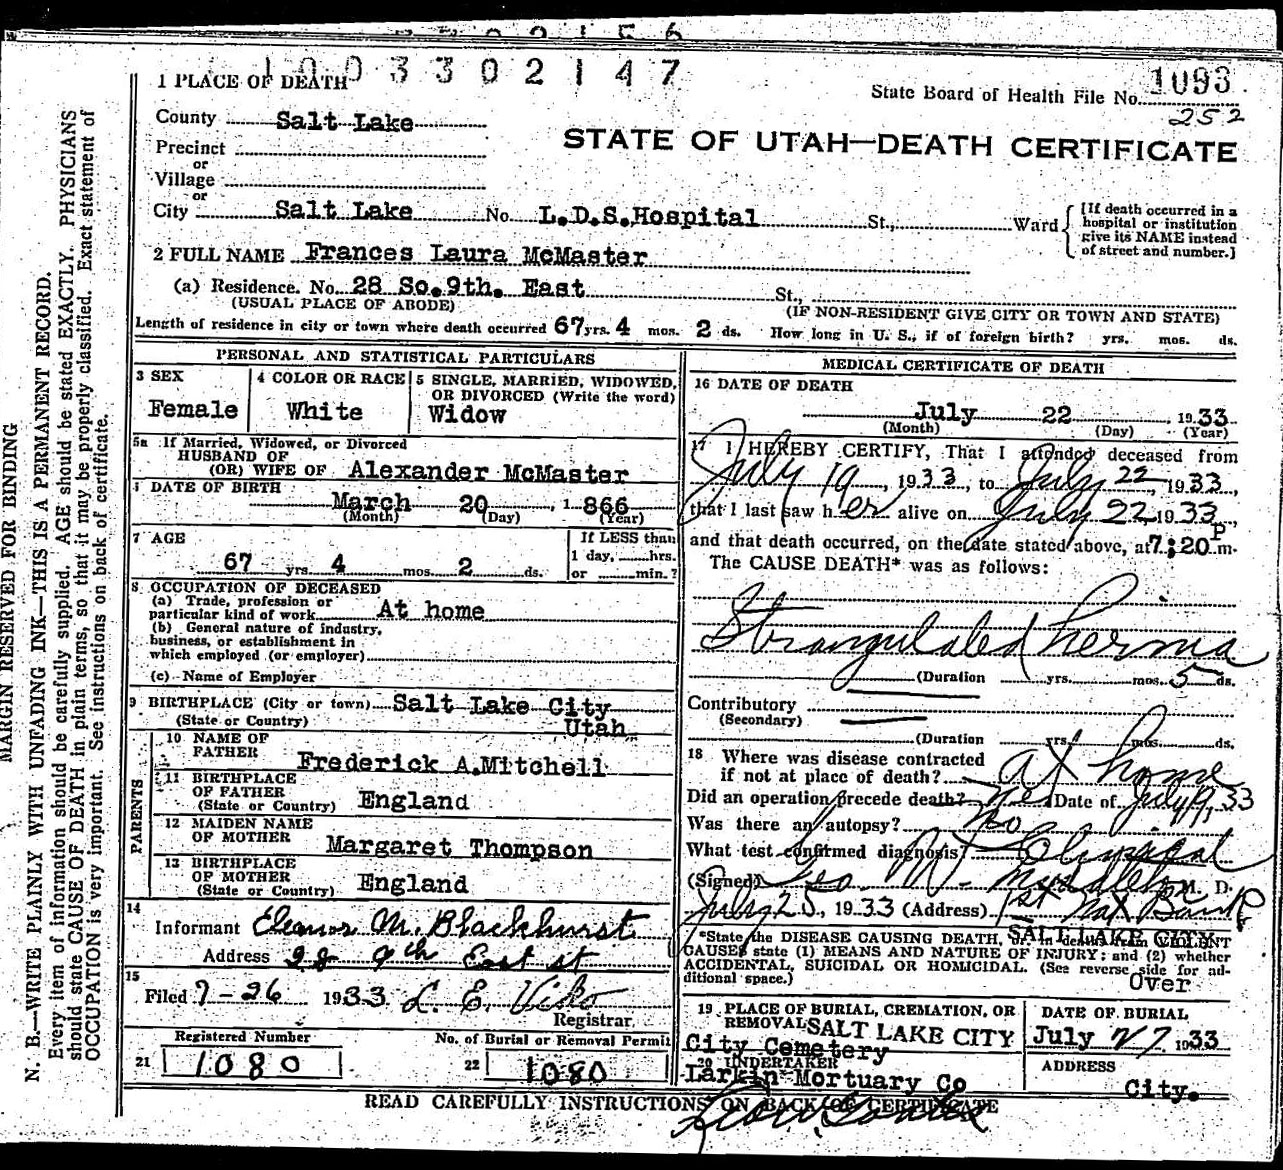 1003302147
1 PLACE OF DEATH
State Board of Health File No. 1093
252
County Salt Lake
STATE OF UTAH—DEATH CERTIFICATE
Precinct
or
Village
or
City Salt Lake No. L.D.S.Hospital St., Ward
[If death occurred in a
hospital or institution
give its NAME instead
of street and number.]
2 FULL NAME Frances Laura McMaster
(a) Residence. No. 28 So.9th. East St.,
(USUAL PLACE OF ABODE) (IF NON-RESIDENT GIVE CITY OR TOWN AND STATE)
Length of residence in city or town where death occurred 67 yrs. 4 mos. 2 ds. How long in U. S., if of foreign birth? yrs. mos. ds.
PERSONAL AND STATISTICAL PARTICULARS
3 SEX
Female
4 COLOR OR RACE
White
5 SINGLE, MARRIED, WIDOWED,
OR DIVORCED (Write the word)
Widow
5a If Married, Widowed, or Divorced
HUSBAND OF
(OR) WIFE OF Alexander McMaster
DATE OF BIRTH
March 20, 1866
(Month) (Day) (Year)
7 AGE
67 yrs 4 mos. 2 ds.
If LESS than
1 day, hrs.
or min.?
8 OCCUPATION OF DECEASED
(a) Trade, profession or
particular kind of work At home
(b) General nature of industry,
business, or establishment in
which employed (or employer)
(c) Name of Employer
9 BIRTHPLACE (City or town) Salt Lake City
(State or Country) Utah
PARENTS
10 NAME OF
FATHER Frederick A.Mitchell
11 BIRTHPLACE
OF FATHER
(State or Country) England
12 MAIDEN NAME
OF MOTHER Margaret Thompson
13 BIRTHPLACE
OF MOTHER
(State or Country) England
14
Informant Eleanor M. Blackhurst
Address 28 9th East st
15
Filed 7-26 1933
Registrar
Registered Number
21 1080
No. of Burial or Removal Permit
22 1080
MEDICAL CERTIFICATE OF DEATH
16 DATE OF DEATH
July 22, 1933
(Month) (Day) (Year)
17 I HEREBY CERTIFY, That I attended deceased from
July 19, 1933, to July 22, 1933,
that I last saw her alive on July 22, 1933,
and that death occurred, on the date stated above, at 7:20 P m.
The CAUSE DEATH* was as follows:
Strangulated hernia
(Duration yrs. mos. 5 ds.
Contributory
(Secondary)
(Duration yrs. mos. ds.
18 Where was disease contracted
if not at place of death? at home
Did an operation precede death? yes Date of July 19, 33
Was there an autopsy? no
What test confirmed diagnosis? Clinical
(Signed) Geo. W. M. D.
July 25, 1933 (Address) 1st Nat Bank
SALT LAKE CITY
*State the DISEASE CAUSING DEATH, or in deaths from VIOLENT
CAUSES state (1) MEANS AND NATURE OF INJURY; and (2) whether
ACCIDENTAL, SUICIDAL OR HOMICIDAL. (See reverse side for ad-
ditional space.)
Over
19 PLACE OF BURIAL, CREMATION, OR
REMOVAL SALT LAKE CITY
City Cemetery
DATE OF BURIAL
July 27, 1933
20 UNDERTAKER
Larkin Mortuary Co
ADDRESS
City.
READ CAREFULLY INSTRUCTIONS ON BACK OF CERTIFICATE
MARGIN RESERVED FOR BINDING
N. B.—WRITE PLAINLY WITH UNFADING INK—THIS IS A PERMANENT RECORD.
Every item of information should be carefully supplied. AGE should be stated EXACTLY. PHYSICIANS
should state CAUSE OF DEATH in plain terms, so that it may be properly classified. Exact statement of
OCCUPATION is very important. See instructions on back of certificate.